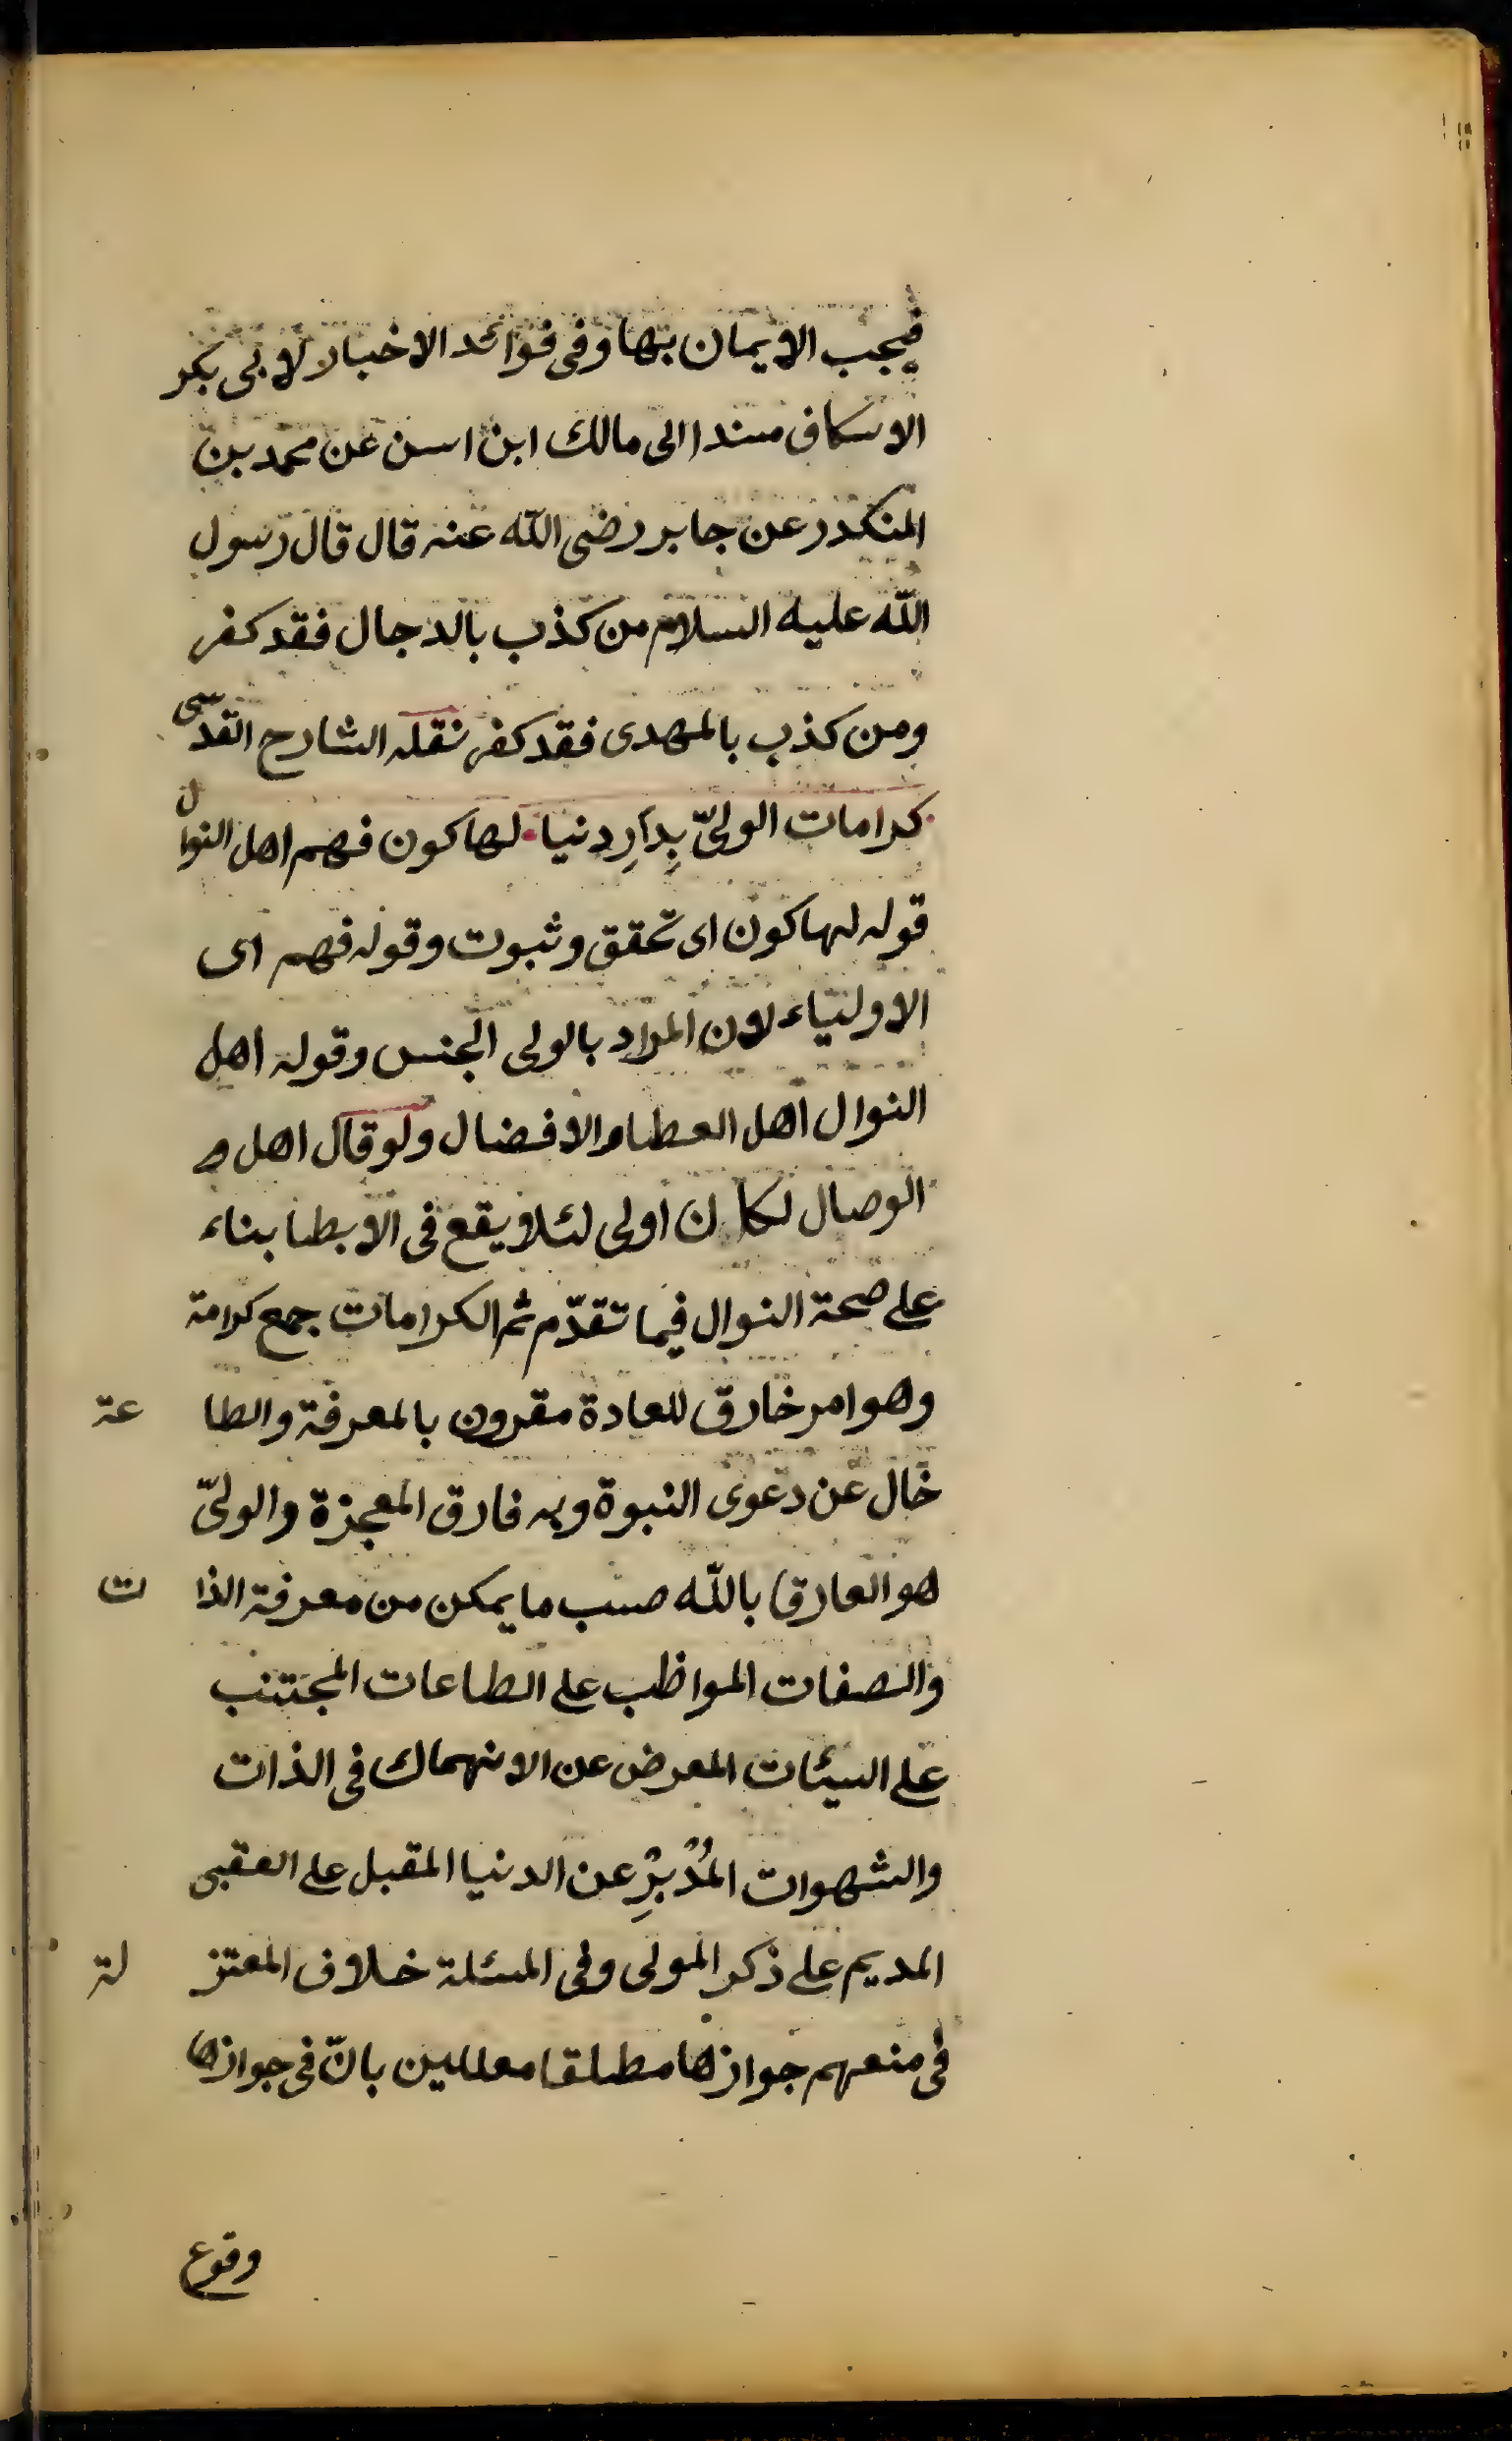 فيجب الايمان بها وفى فوائد الاخبار لابى بكر
الاسكاف مسندا الى مالك ابن اسن عن محمد بن
المنكدر عن جابر رضى الله عنه قال قال رسول
الله عليه السلام من كذب بالدجال فقد كفر
ومن كذب بالمهدى فقد كفر نقله الشارح القدسى
كرامات الولىّ بِدَارِ دنيا لها كون فهم اهل النوال
قوله لها كون اى تحقق وثبوت وقوله فهم اى
الاولياء لان المراد بالولى الجنس وقوله اهل
النوال اهل العطاء والافضال ولو قال اهل و
الوصال لكان اولى لئلا يقع فى الابطا بناء
على صحة النوال فيما تقدّم ثم الكرامات جمع كرامة
وهو امر خارق للعادة مقرون بالمعرفة والطا عة
خال عن دعوى النبوة وبه فارق المعجزة والولىّ
هو العارف بالله حسب ما يمكن من معرفة الذا ت
والصفات المواظب على الطاعات المجتنب
على السيئات المعرض عن الانهماك فى الذات
والشهوات المُدْبِرْ عن الدنيا المقبل على العقبى
المديم على ذكر المولى وفى المسئلة خلاف المعتز لة
فى منعهم جوازها مطلقا معللين بانّ فى جوازها
وقوع